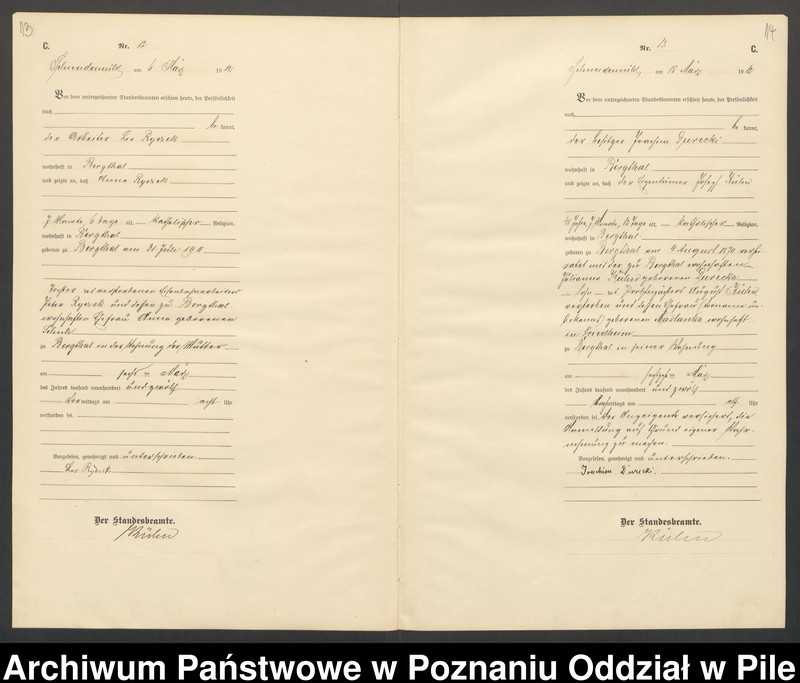 13
C.
Nr. 12
Schneidemühl, am 6 März 1912
Vor dem unterzeichneten Standesbeamten erschien heute, der Persönlichkeit
nach
be kannt,
der Arbeiter Leo Ryczek
wohnhaft in Bergthal
und zeigte an, daß Anna Ryczek
7 Monate, 6 Tage alt, katholischer Religion,
wohnhaft in Bergthal
geboren zu Bergthal am 31 Juli 191
Tochter des verstorbenen Eisenbahnarbeiters
Peter Ryczek und dessen zu Bergthal
wohnhaften Ehefrau Anna geborenen
zu Bergthal in der Wohnung der Mutter
am sechs ten März
des Jahres tausend neunhundert und zwölf
Vor mittags um acht Uhr
verstorben sei.
Vorgelesen, genehmigt und unterschrieben
Leo Ryczek
Der Standesbeamte.
14
Nr. 13
C.
Schneidemühl, am 18 März 1912
Vor dem unterzeichneten Standesbeamten erschien heute, der Persönlichkeit
nach
be kannt,
der Besitzer Joachim Durecki
wohnhaft in Bergthal
und zeigte an, daß der Eigentümer Joseph
41 Jahre, 7 Monate, 12 Tage alt, katholischer Religion,
wohnhaft in Bergthal
geboren zu Bergthal am 4 August 1870 verhei-
ratet mit der zu Bergthal wohnhaften
Julianna geborenen Durecka
Sohn des August
verstorben und dessen Ehefrau, Vorname un-
bekannt, geborenen Maslanka wohnhaft
in Friedheim
zu Bergthal in seiner Wohnung
am sechzehn ten März
des Jahres tausend neunhundert und zwölf
mittags um elf Uhr
verstorben sei. Der Anzeigende versichert, die
Anmeldung auf Grund eigener Wahr-
nehmung zu machen.
Vorgelesen, genehmigt und unterschrieben.
Joachim Durecki.
Der Standesbeamte.
Archiwum Państwowe w Poznaniu Oddział w Pile